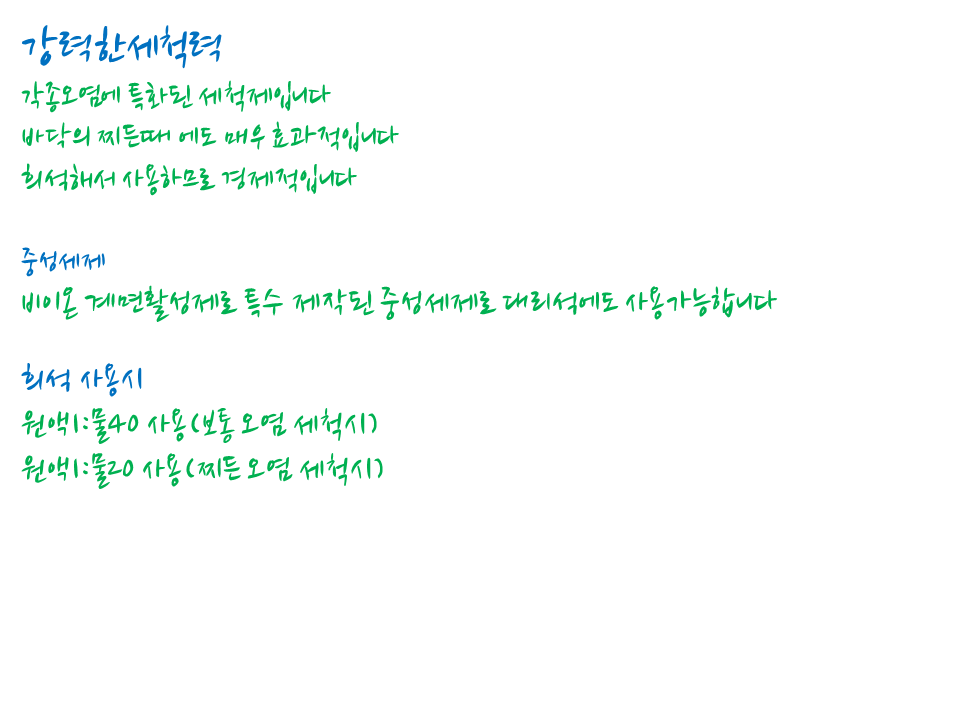 강력한세척력
각종오염에 특화된 세척제입니다
바닥의 찌든때 에도 매우 효과적입니다
희석해서 사용하므로 경제적입니다
중성세제
비이온 계면활성제로 특수 제작된 중성세제로 대리석에도 사용가능합니다
희석 사용시
원액1:물40 사용(보통 오염 세척시)
원액1:물20 사용(찌든 오염 세척시)